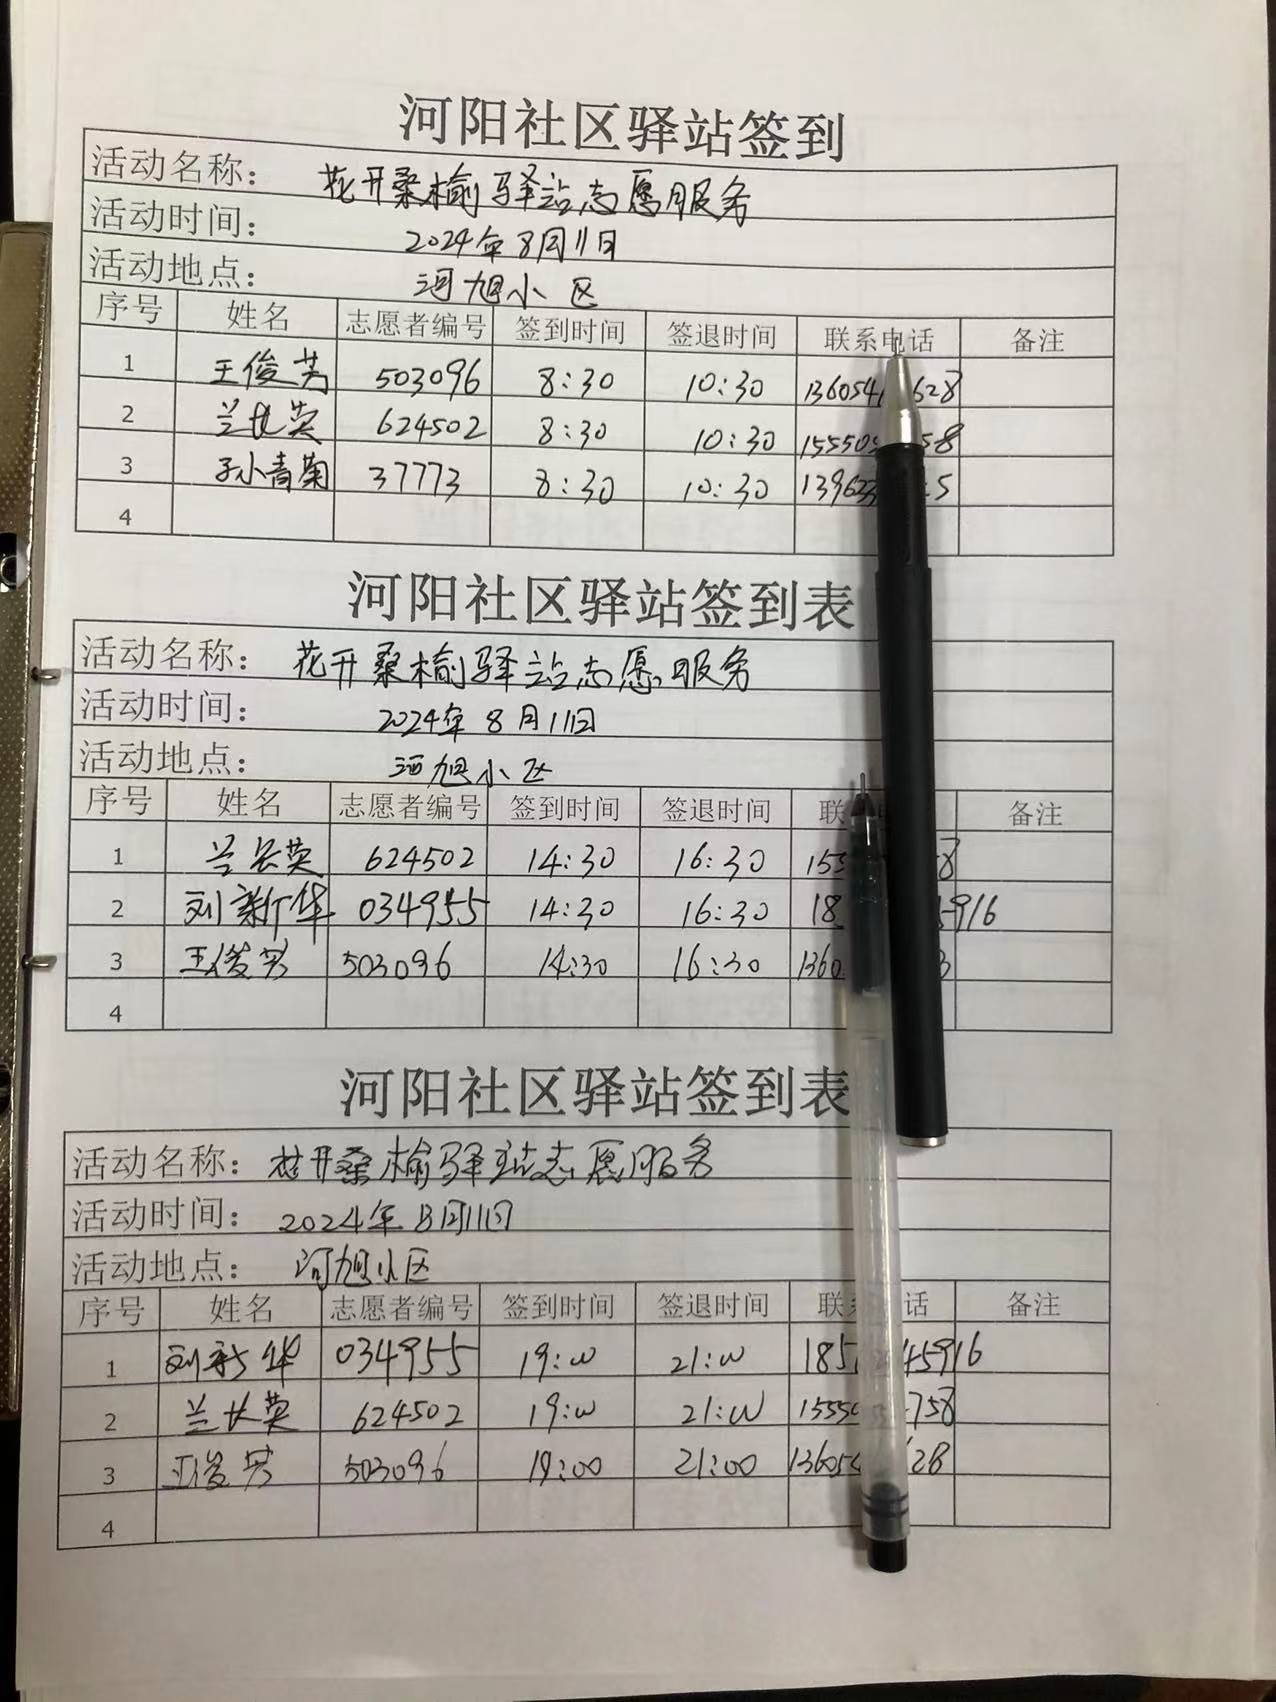 河阳社区驿站签到
活动名称： 花开桑榆驿站志愿服务
活动时间： 2024年8月11日
活动地点： 河旭小区
序号 姓名 志愿者编号 签到时间 签退时间 联系电话 备注
1 王俊英 503096 8:30 10:30
2 兰长英 624502 8:30 10:30
3 孙青菊 37773 8:30 10:30
4
河阳社区驿站签到表
活动名称： 花开桑榆驿站志愿服务
活动时间： 2024年8月11日
活动地点： 河旭小区
序号 姓名 志愿者编号 签到时间 签退时间 联 备注
1 兰长英 624502 14:30 16:30
2 刘新华 034955 14:30 16:30
3 王俊英 503096 14:30 16:30
4
河阳社区驿站签到表
活动名称： 花开桑榆驿站志愿服务
活动时间： 2024年8月11日
活动地点： 河旭小区
序号 姓名 志愿者编号 签到时间 签退时间 联 话 备注
1 刘新华 034955 19:00 21:00
2 兰长英 624502 19:00 21:00
3 王俊英 503096 19:00 21:00
4